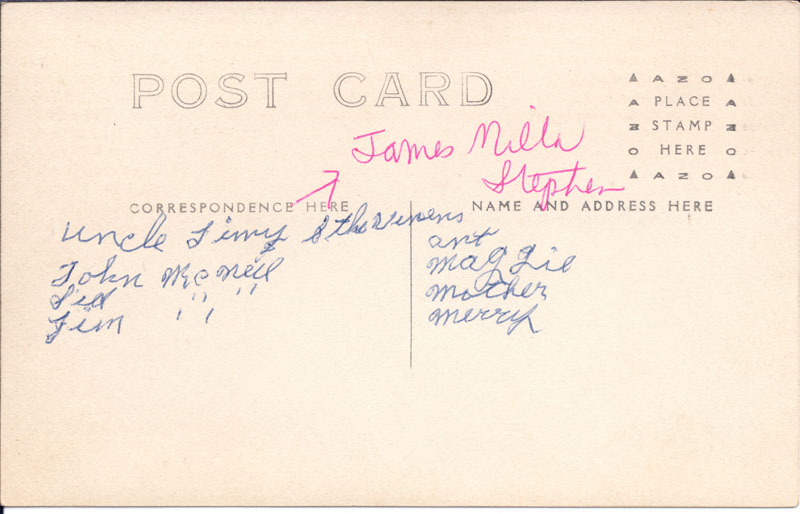 POST CARD
▲ AZO ▲
PLACE
STAMP
HERE
▲ AZO ▲
James
Stephen
CORRESPONDENCE HERE
NAME AND ADDRESS HERE
uncle
John McNeill
Sid " "
Jim " "
ant
maggie
mother
merry